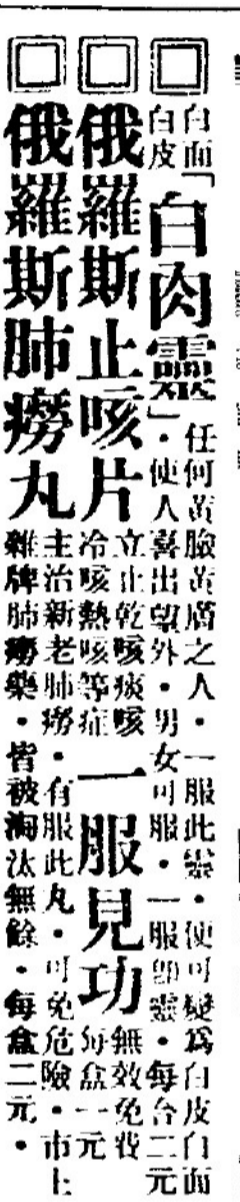 白面
白皮
「白肉靈」
任何黃臉黃膚之人・一服此靈・便可變為白皮白面
・使人喜出望外・男女可服・一服即靈・每台二元
俄羅斯止咳片
立止乾咳痰咳
冷咳熱咳等症
一服見功
無效免費
每盒一元
俄羅斯肺癆丸
主治新老肺癆・有服此丸・可免危險・市上
雜牌肺癆藥・皆被淘汰無餘・每盒二元・